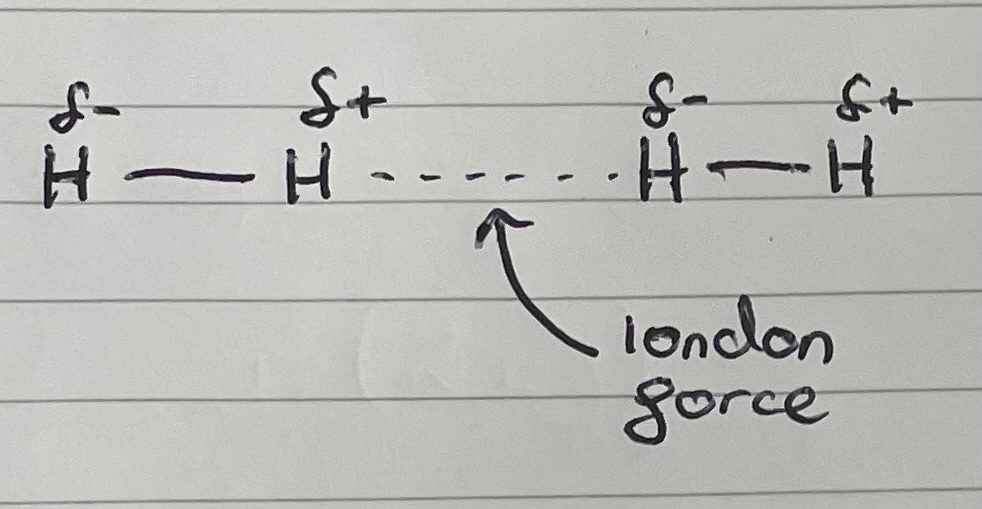 δ- δ+ δ- δ+
H — H - - - - - - - H — H
london
force